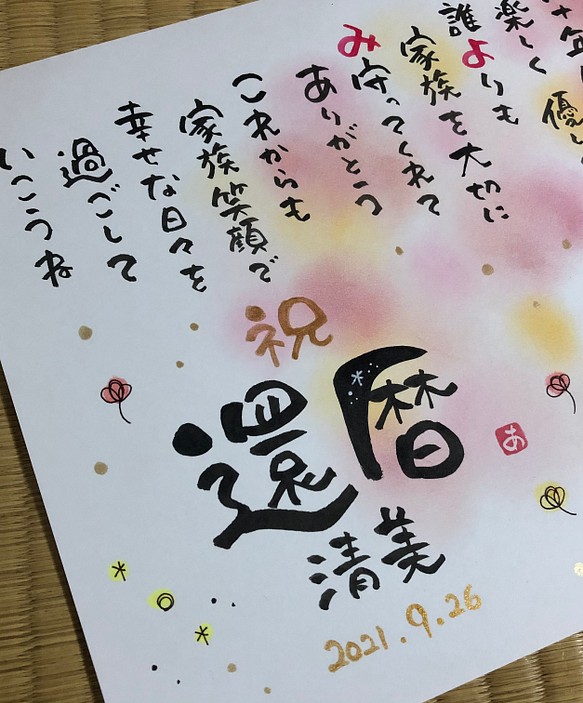 十年
楽しく 優し
誰よりも
家族を大切に
み守ってくれて
ありがとう
これからも
家族笑顔で
幸せな日々を
過ごして
いこうね
祝
還暦
あ
清美
2021.9.26